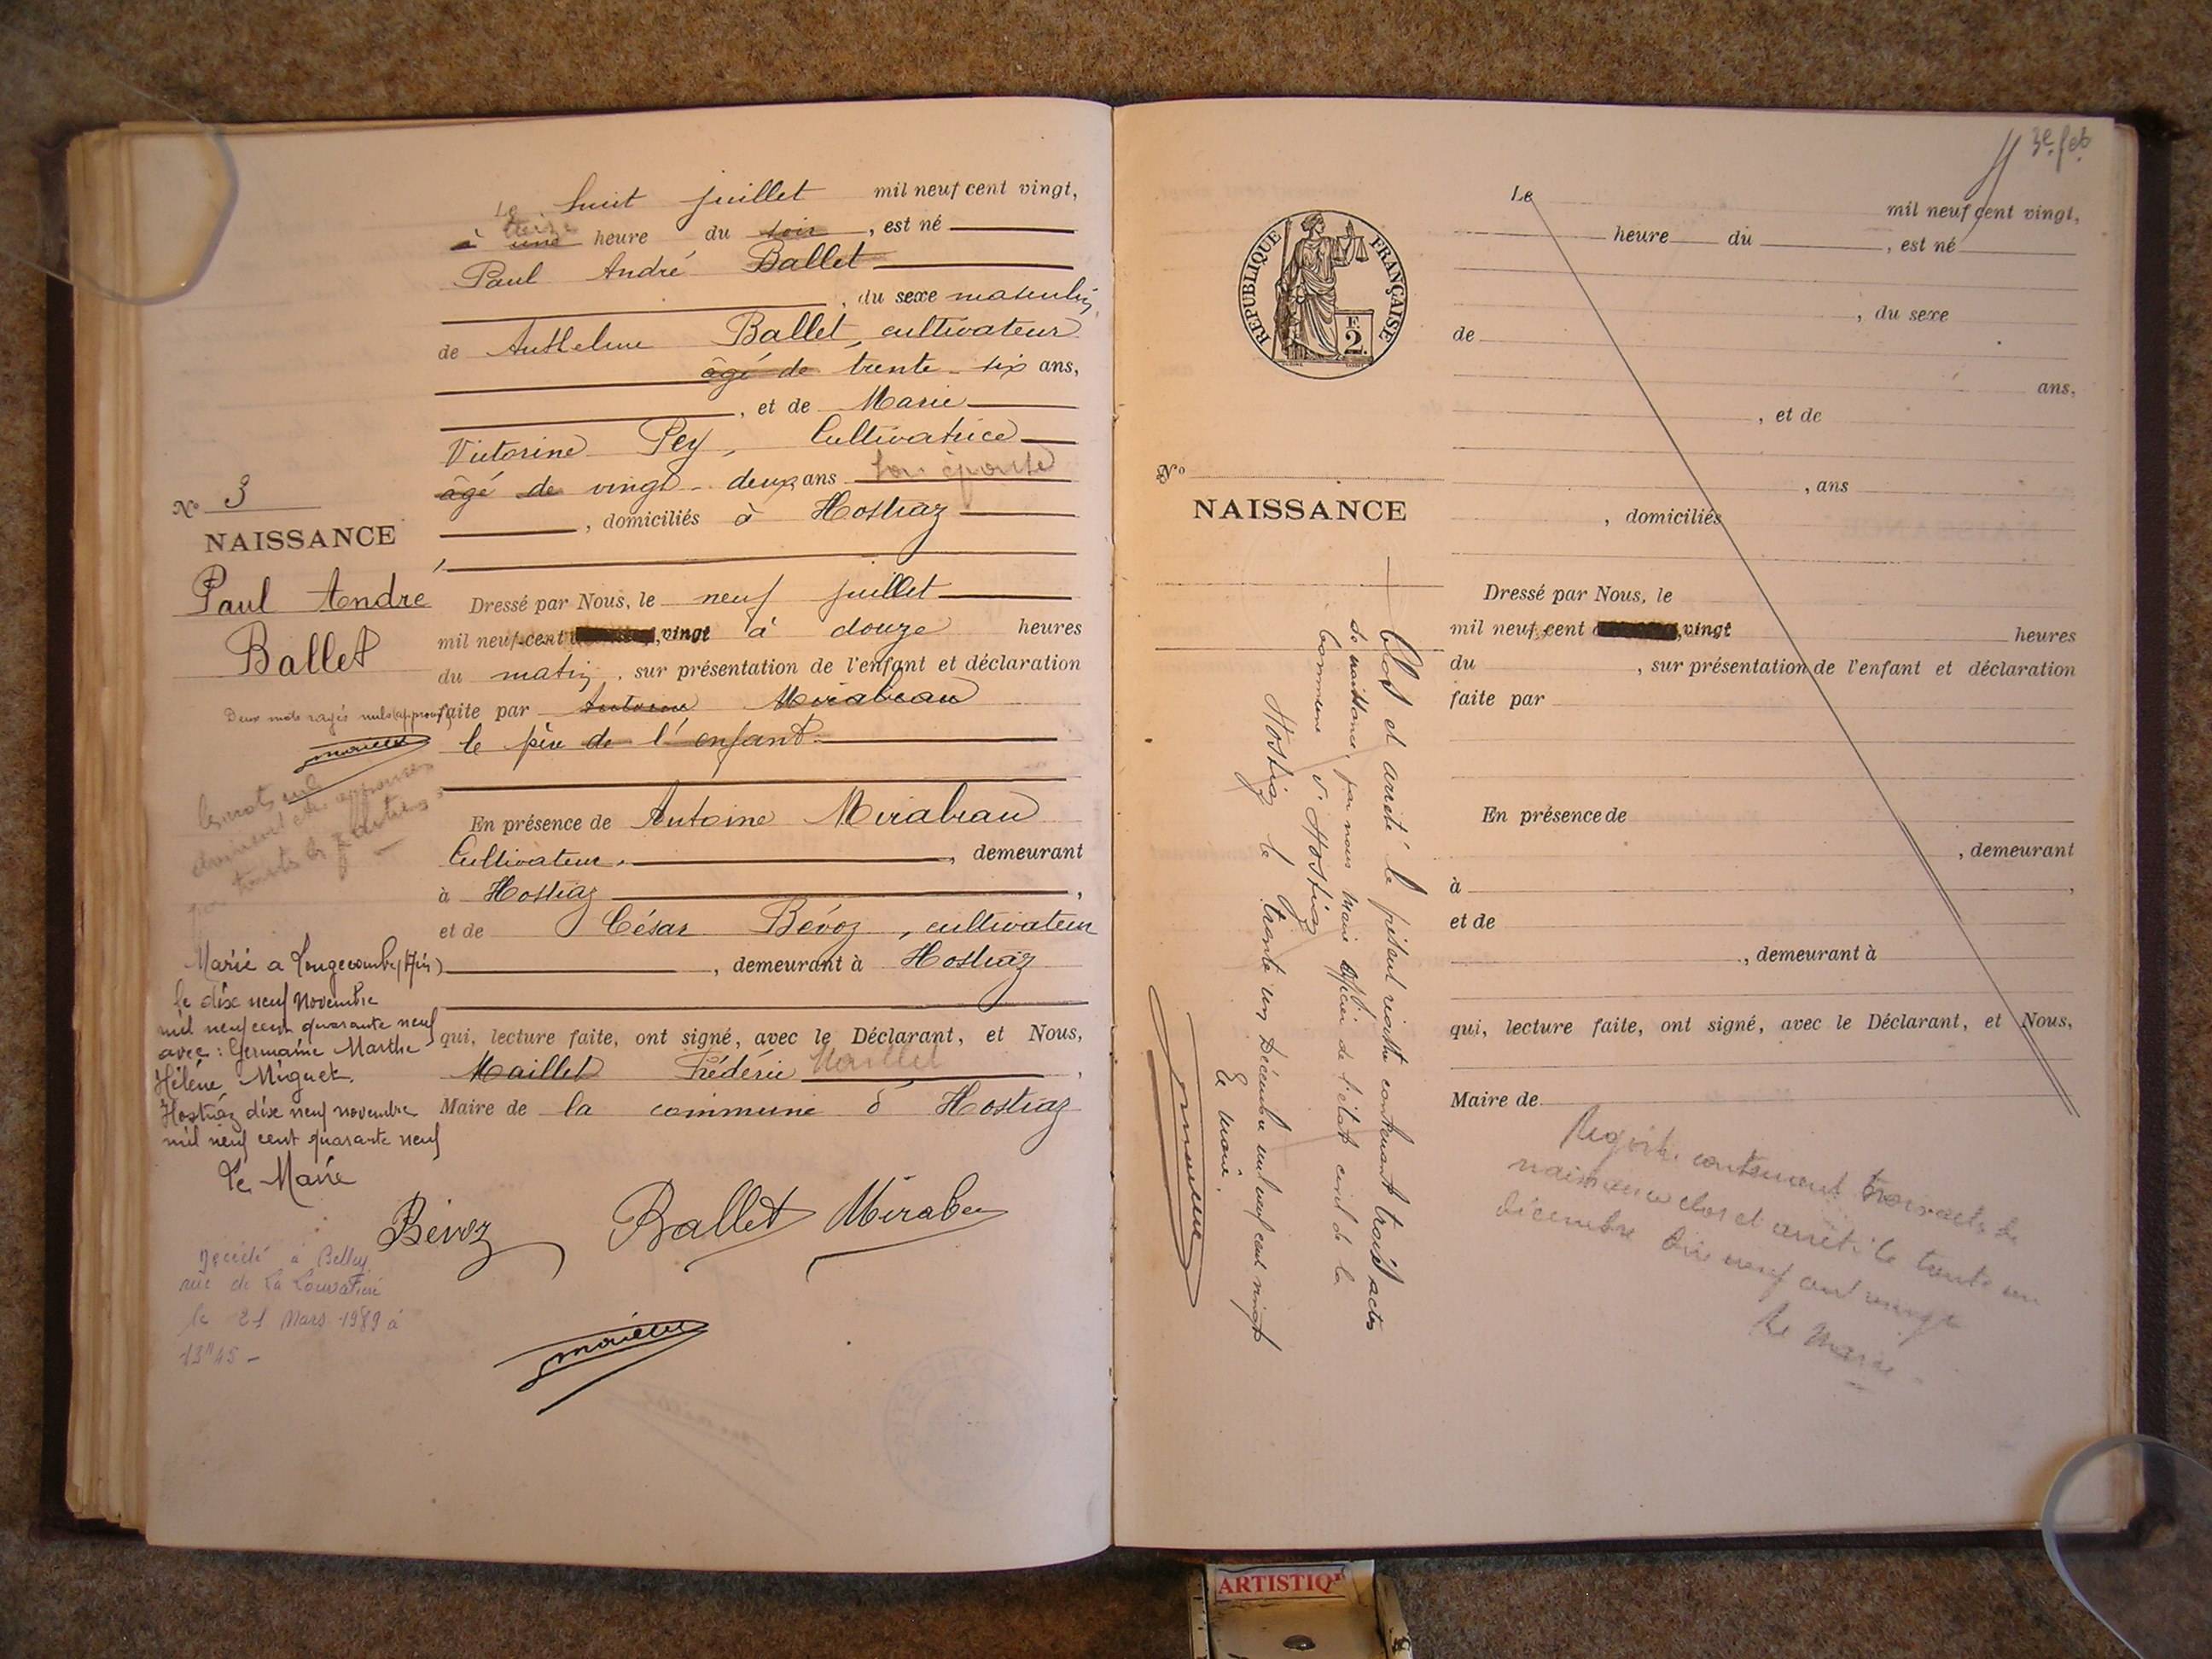 Le huit juillet mil neuf cent vingt,
treize
à une heure du soir, est né
Paul André Ballet
, du sexe masculin,
de Anthelme Ballet, cultivateur
âgé de trente-six ans,
, et de Marie
Victorine Pey, Cultivatrice
âgé de vingt-deux ans son épouse
, domiciliés à Hostiaz
Dressé par Nous, le neuf juillet
mil neuf cent vingt à douze heures
du matin, sur présentation de l'enfant et déclaration
faite par Antoine Mirabeau
le père de l'enfant.
En présence de Antoine Mirabeau
Cultivateur, demeurant
à Hostiaz,
et de César Bévoz, cultivateur
, demeurant à Hostiaz
qui, lecture faite, ont signé, avec le Déclarant, et Nous,
Maillet Frédéric Maillet,
Maire de la commune d'Hostiaz
Bévoz Ballet Mirabeau
N° 3
NAISSANCE
Paul Andre
Ballet
Deux mots rayés nuls (approuvés)
Marié a Longecombe (Ain)
le dix neuf Novembre
mil neuf cent quarante neuf
avec : Germaine Marthe
Hélène Miguet.
Hostiaz dix neuf novembre
mil neuf cent quarante neuf
Le Maire
Décédé à Belley
rue de La
le 21 Mars 1989 à
13h45 -
REPUBLIQUE FRANÇAISE
E
2.
N°
NAISSANCE
Clos et arrêté le présent registre contenant trois actes
de naissance, par nous Maire officier de l'état civil de la
Commune d'Hostiaz
Hostiaz le trente un Décembre mil neuf cent vingt
Le Maire.
Le mil neuf cent vingt,
heure du , est né
, du sexe
de
ans,
, et de
, ans
, domiciliés
Dressé par Nous, le
mil neuf cent vingt heures
du , sur présentation de l'enfant et déclaration
faite par
En présence de
, demeurant
à ,
et de
, demeurant à
qui, lecture faite, ont signé, avec le Déclarant, et Nous,
Maire de
contenant trois actes de
naissance clos et arrêté le trente un
décembre dix neuf cent vingt
Le Maire
ARTISTIQ